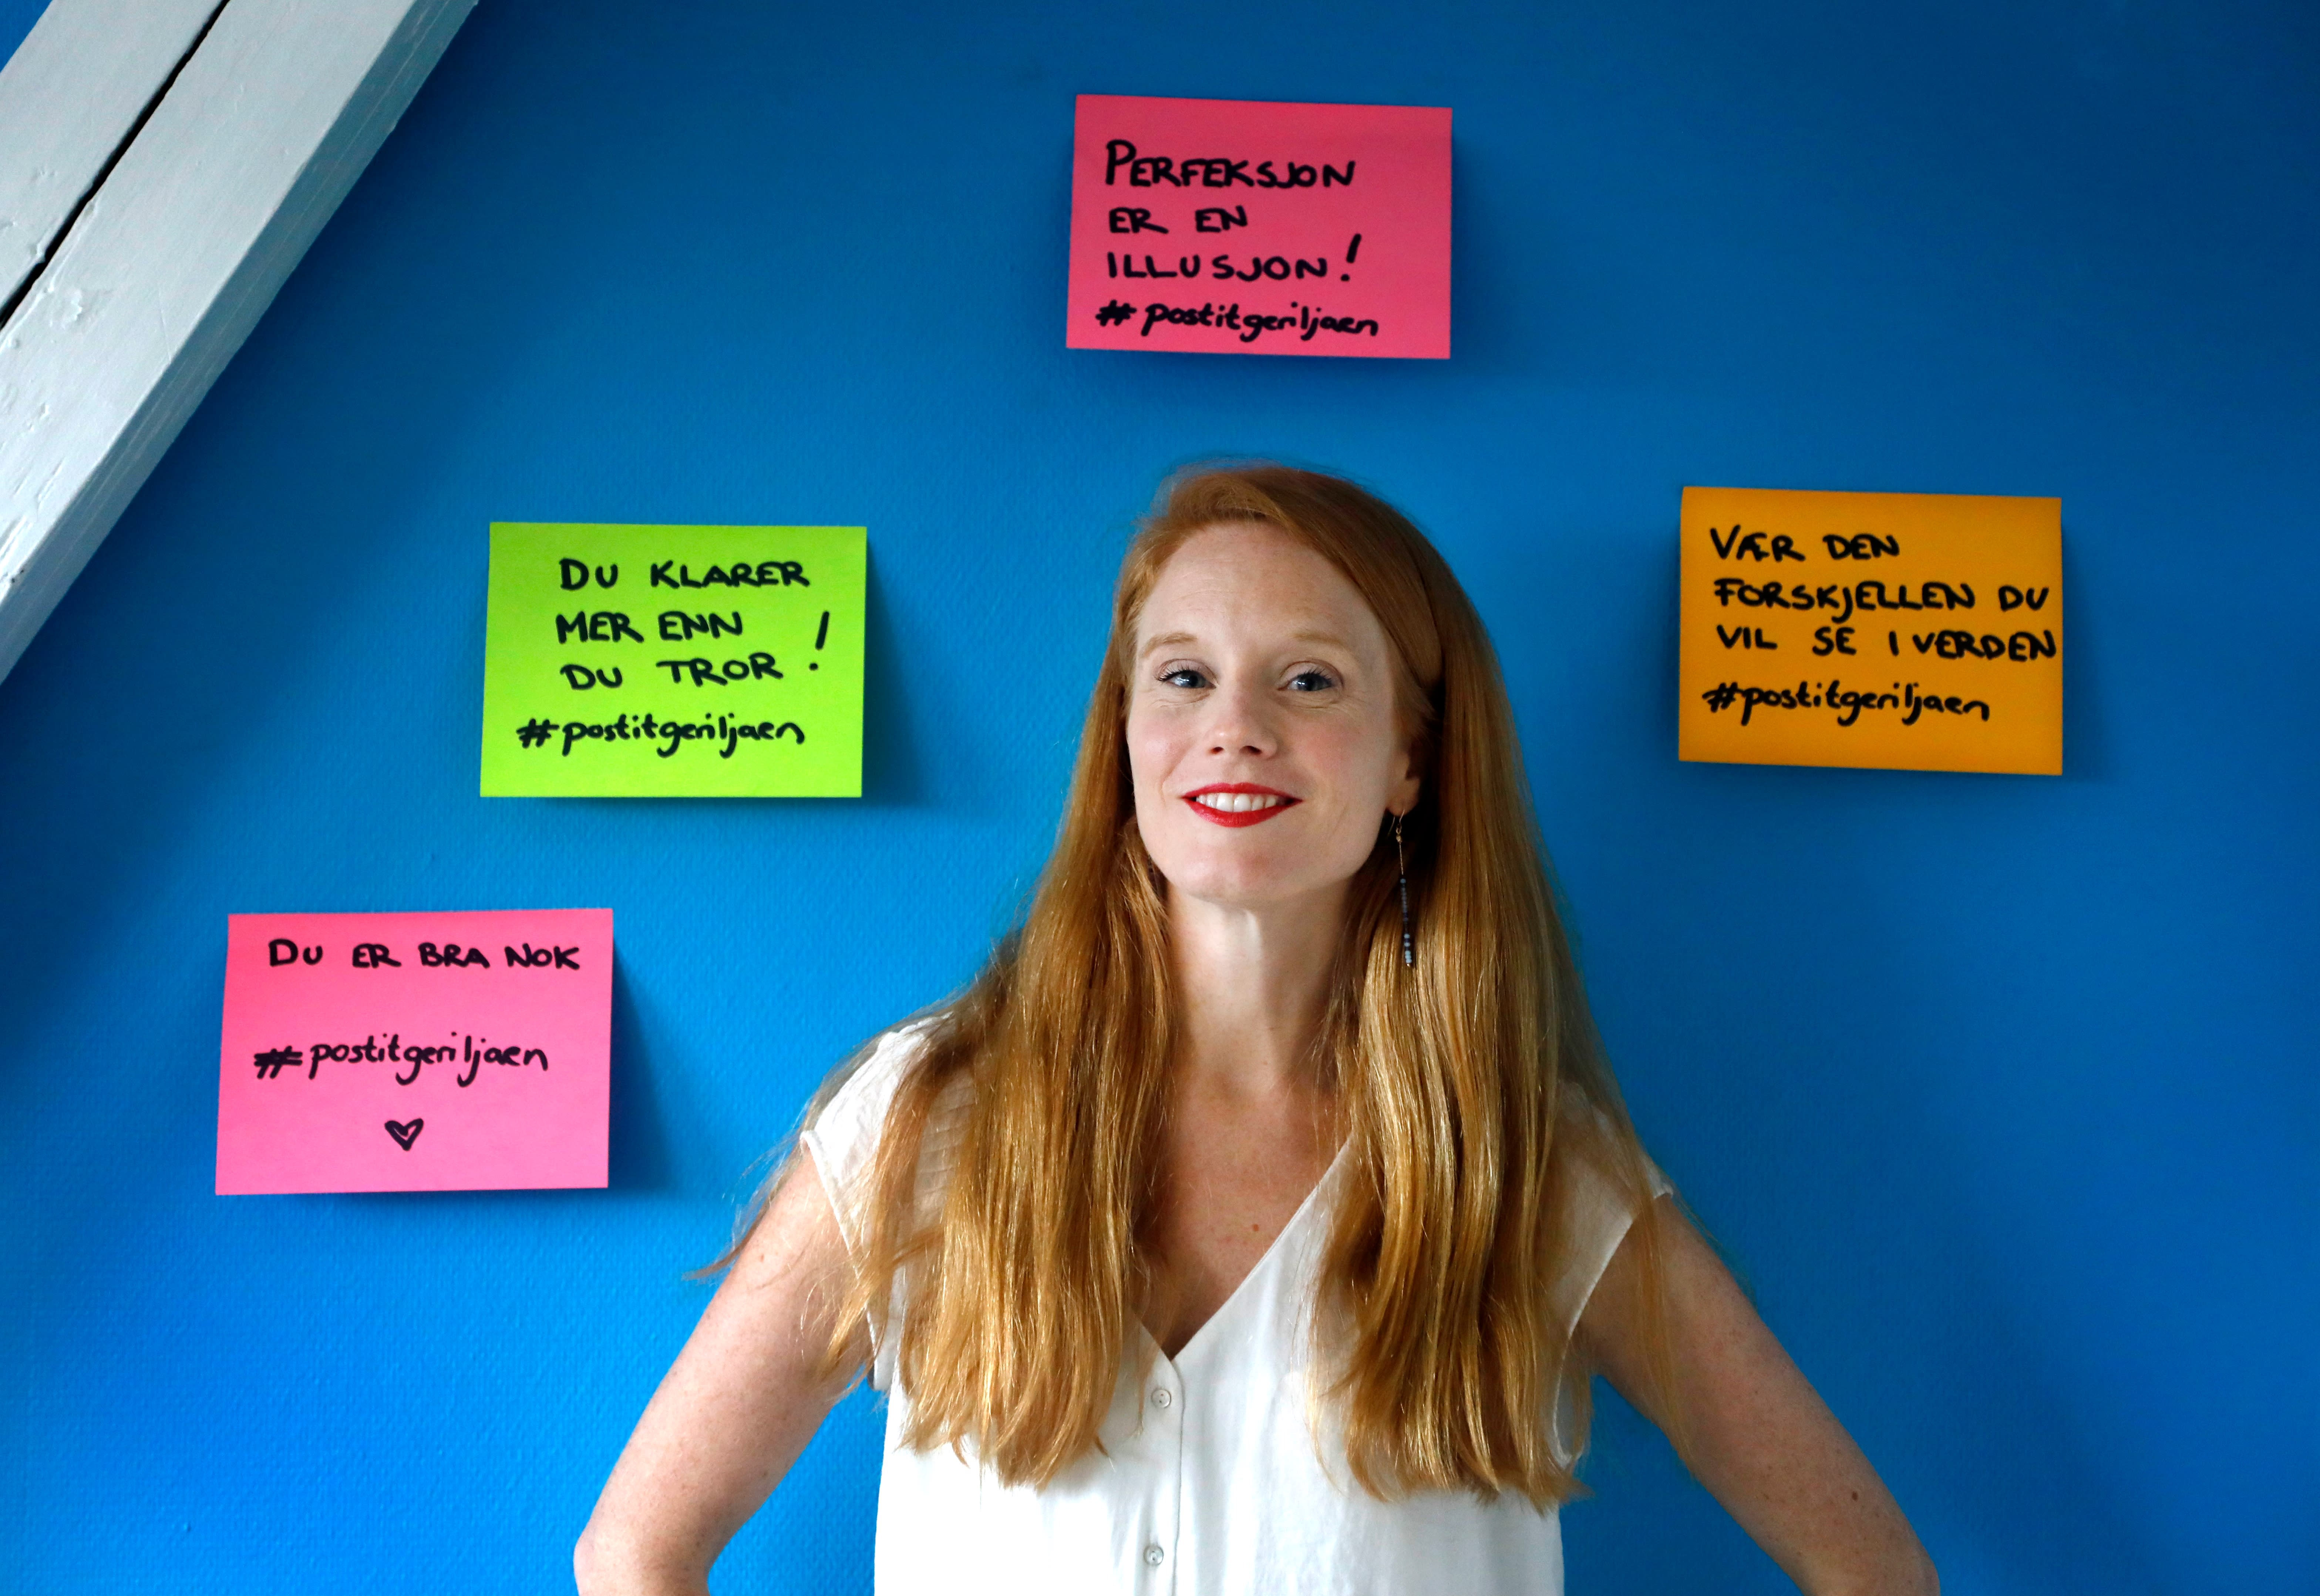 PERFEKSJON
ER EN
ILLUSJON!
#postitgeriljaen
DU KLARER
MER ENN
DU TROR !
#postitgeriljaen
VÆR DEN
FORSKJELLEN DU
VIL SE I VERDEN
#postitgeriljaen
DU ER BRA NOK
#postitgeriljaen